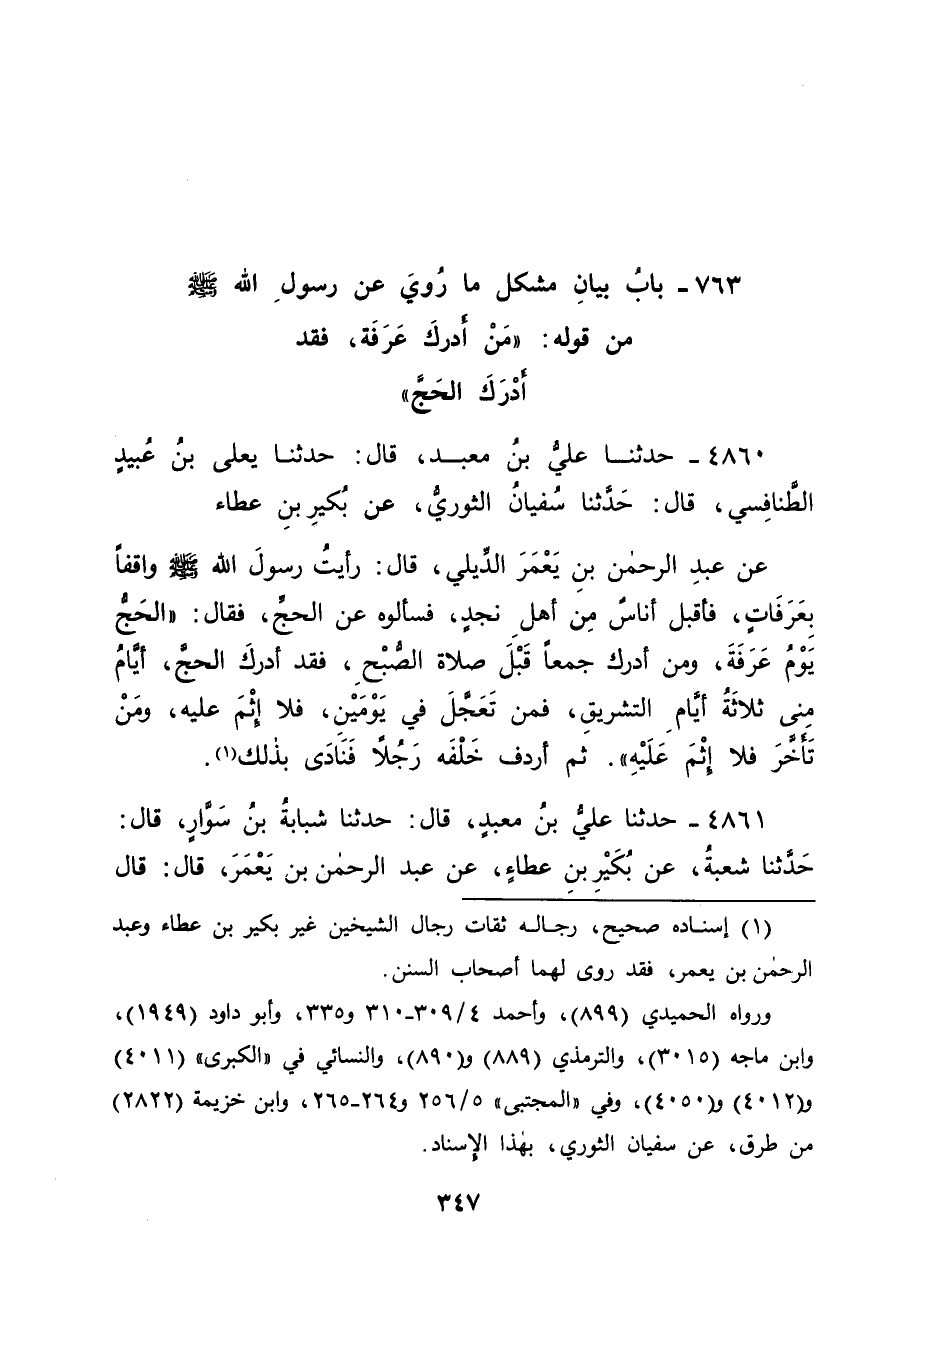 ٧٦٣ ـ بابُ بيانِ مشكل ما رُويَ عن رسولِ الله ﷺ
من قوله: «مَنْ أَدركَ عَرَفَة، فقد
أَدْرَكَ الحَجَّ»
٤٨٦٠ ـ حدثنا عليُّ بنُ معبد، قال: حدثنا يعلى بنُ عُبيدٍ
الطَّنافِسي، قال: حَدَّثنا سُفيانُ الثوريُّ، عن بُكيرِ بنِ عطاء
عن عبدِ الرحمٰن بنِ يَعْمَرَ الدِّيلي، قال: رأيتُ رسولَ الله ﷺ واقفاً
بِعَرَفَاتٍ، فأقبل أناسٌ مِن أهلِ نجدٍ، فسألوه عن الحجِّ، فقال: «الحَجُّ
يَوْمُ عَرَفَةَ، ومن أدرك جمعاً قَبْلَ صلاة الصُّبْحِ، فقد أدركَ الحجَّ، أيَّامُ
مِنى ثلاثَةُ أيَّامِ التشريقِ، فمن تَعَجَّلَ في يَوْمَيْنِ، فلا إثْمَ عليه، ومَنْ
تَأَخَّرَ فلا إثْمَ عَلَيْهِ». ثم أردف خَلْفَه رَجُلًا فَنَادَى بذٰلك(١).
٤٨٦١ ـ حدثنا عليُّ بنُ معبدٍ، قال: حدثنا شبابةُ بنُ سَوَّارٍ، قال:
حَدَّثنا شعبةُ، عن بُكَيْرِ بنِ عطاءٍ، عن عبد الرحمٰن بن يَعْمَرَ، قال: قال
(١) إسناده صحيح، رجاله ثقات رجال الشيخين غير بكير بن عطاء وعبد
الرحمٰن بن يعمر، فقد روى لهما أصحاب السنن.
ورواه الحميدي (٨٩٩)، وأحمد ٣٠٩/٤-٣١٠ و٣٣٥، وأبو داود (١٩٤٩)،
وابن ماجه (٣٠١٥)، والترمذي (٨٨٩) و(٨٩٠)، والنسائي في «الكبرى» (٤٠١١)
و(٤٠١٢) و(٤٠٥٠)، وفي «المجتبى» ٢٥٦/٥ و٢٦٤-٢٦٥، وابن خزيمة (٢٨٢٢)
من طرق، عن سفيان الثوري، بهٰذا الإسناد.
٣٤٧